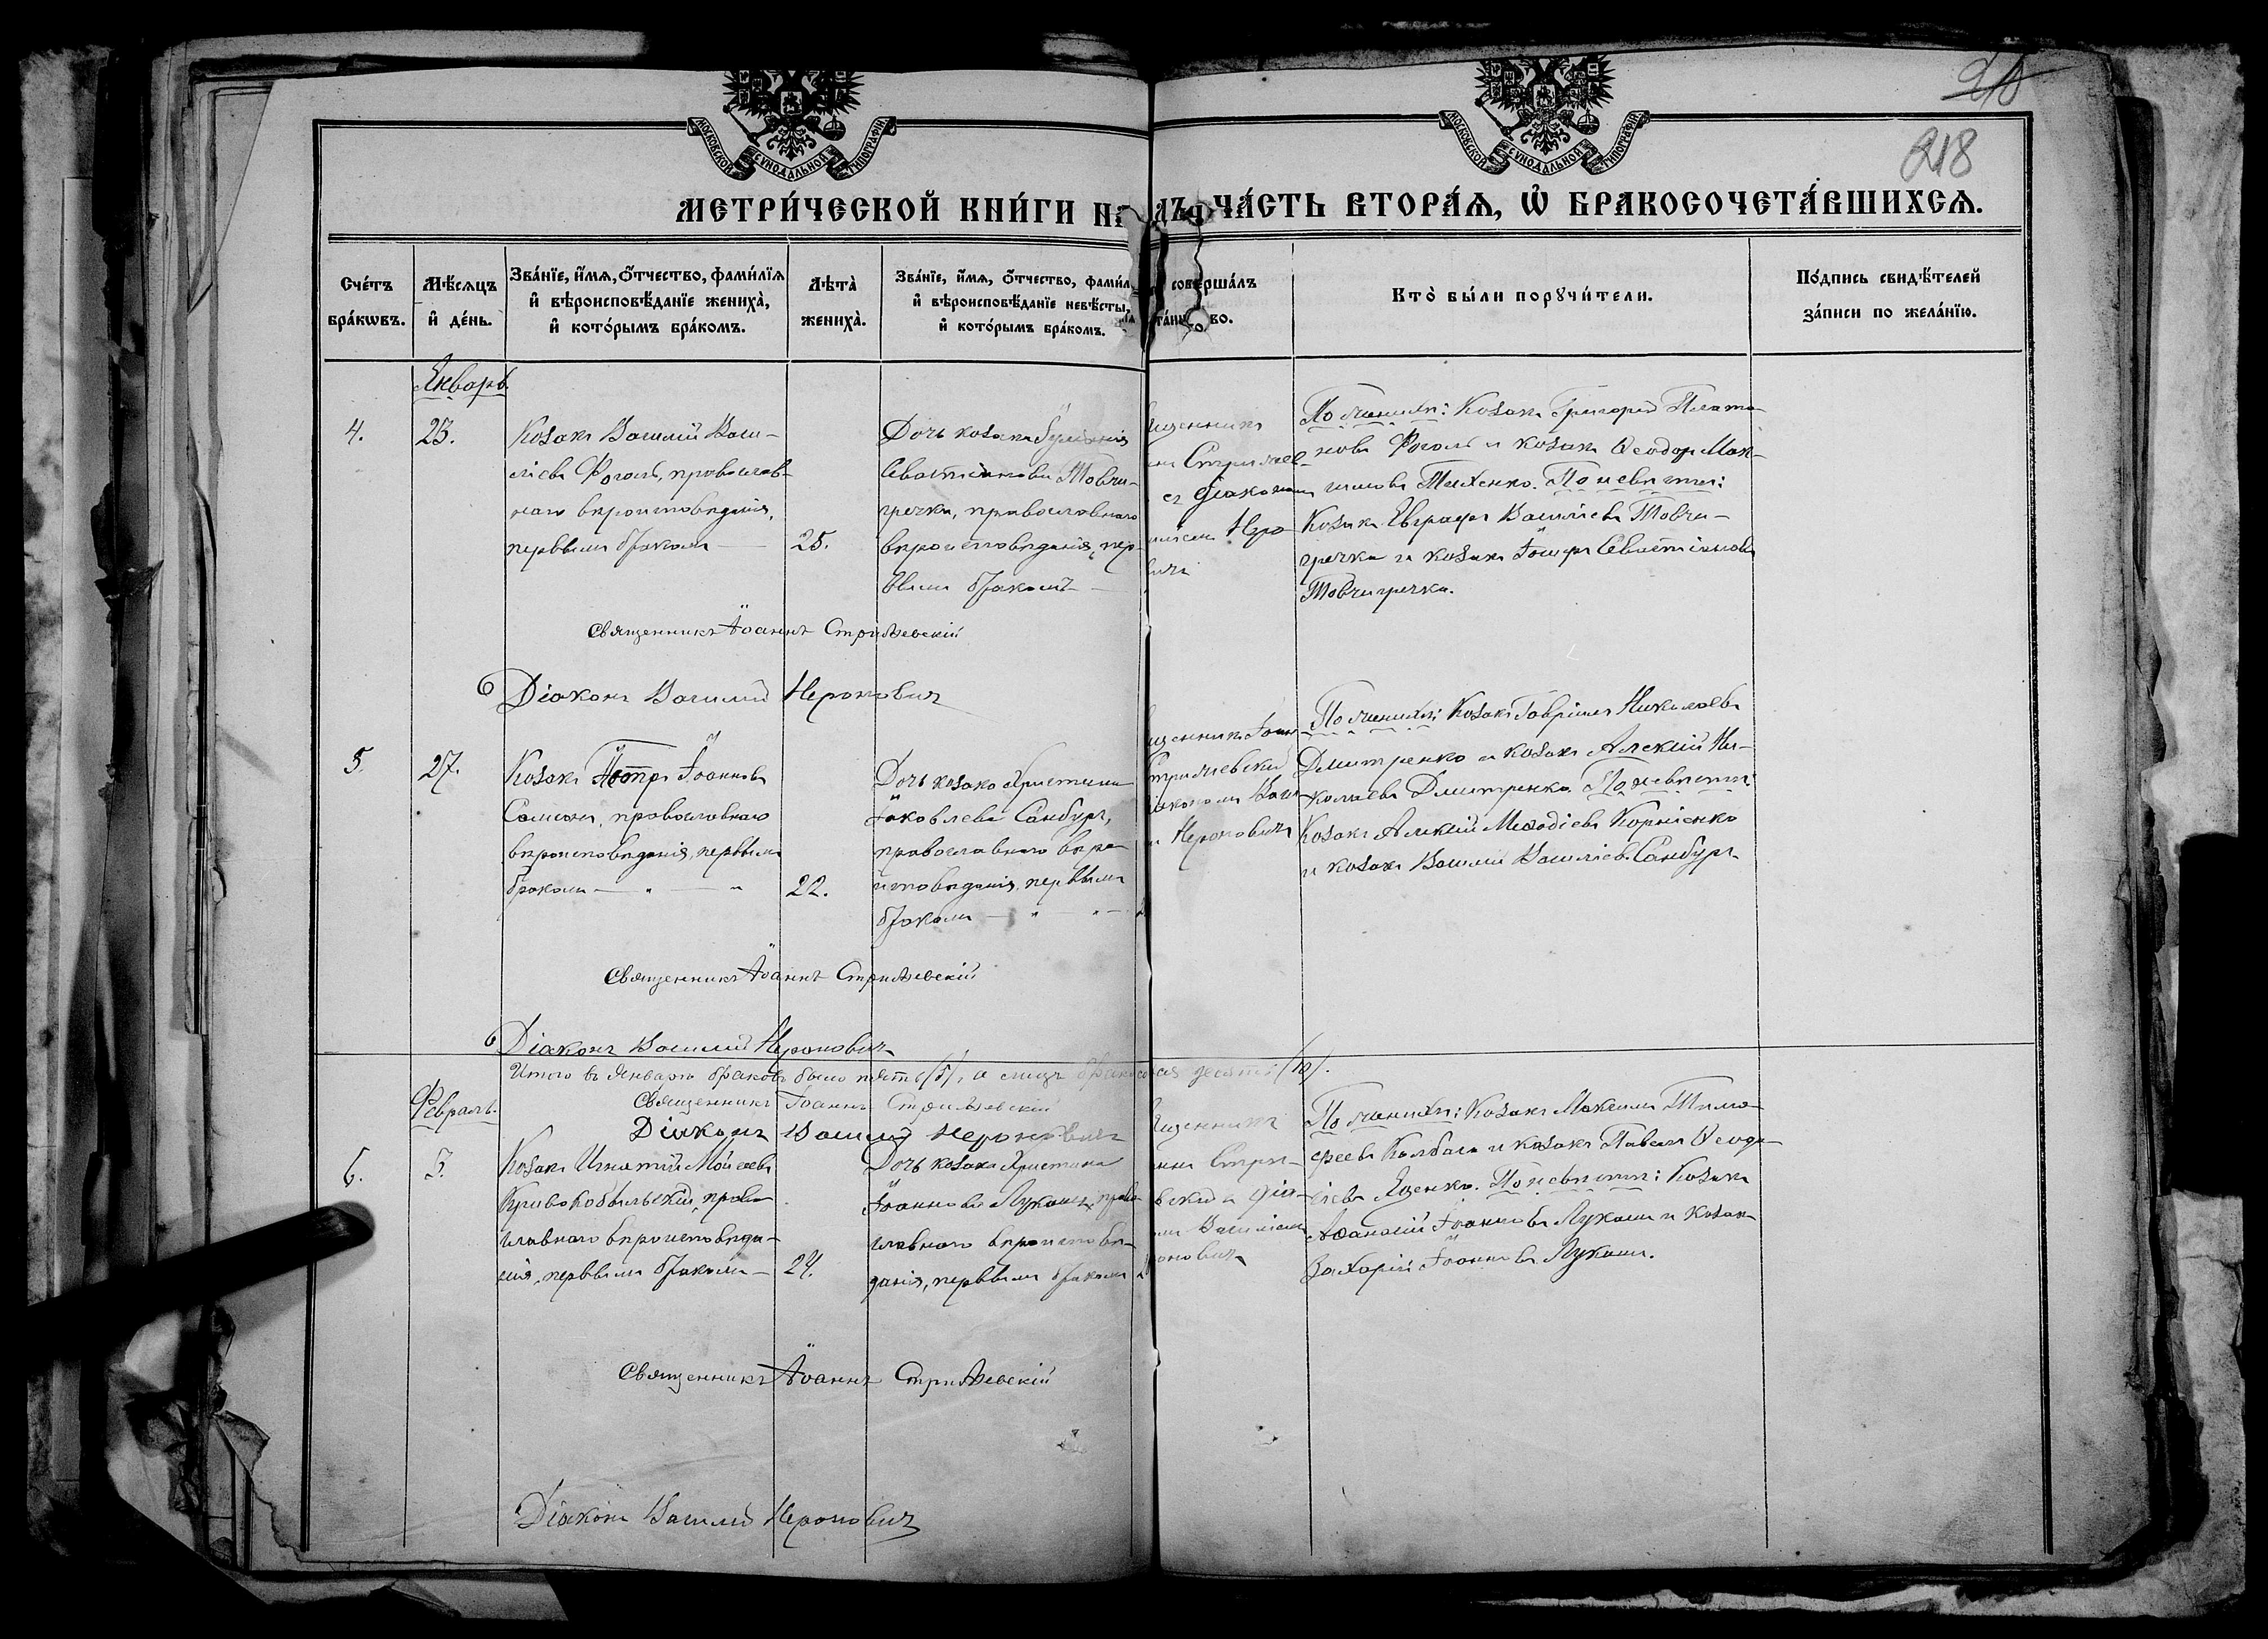 218
МОСКОВСКОЙ СѴНОДАЛЬНОЙ ТИПОГРАФІИ
МОСКОВСКОЙ СѴНОДАЛЬНОЙ ТИПОГРАФІИ
МЕТРИ́ЧЕСКОЙ КНИ́ГИ НА
ЧА́СТЬ ВТОРА́Я, Ѡ БРАКОСОЧЕТА́ВШИХСЯ.
Сче́тъ бра́кѡвъ.
Мѣ́сяцъ и҆ де́нь.
Зва́нїе, и҆́мя, ѻ҆́тчество, фами́лїя
и҆ вѣроисповѣ́данїе жениха̀,
и҆ кото́рымъ бра́комъ.
Лѣта̀ жениха̀.
Зва́нїе, и҆́мя, ѻ҆́тчество, фами́л
и҆ вѣроисповѣ́данїе невѣ́сты,
и҆ кото́рымъ бра́комъ.
соверша́лъ
Кто̀ бы́ли порꙋчи́тели.
По́дпись свидѣ́телей
за́писи по жела́нїю.
Январь.
4.
23.
Козакъ Василій Васи-
ліевъ Фоголь, православ-
наго вѣроисповѣданія,
первымъ бракомъ
25.
Дочь козака
Севастіанова Товчи-
гречка, православнаго
вѣроисповѣданія, пер-
вымъ бракомъ
щенникъ
Стрижев-
съ діакономъ
иліемъ Неро-
вичъ
По женихѣ: Козакъ Григорій Плато-
новъ Фоголь и козакъ Ѳеодоръ Мак-
симовъ Тихенко. По невѣстѣ:
Козакъ Евграфъ Василіевъ Товчи-
гречка и козакъ Іосифъ Севастіановъ
Товчигречка.
Священникъ Іоаннъ Стрижевскій
Діаконъ Василій Нероновичъ
5.
27.
Козакъ Петръ Іоанновъ
православнаго
вѣроисповѣданія, первымъ
бракомъ
22.
Дочь козака Христина
Іаковлева Санбуръ,
православнаго вѣро-
исповѣданія, первымъ
бракомъ
щенникъ Іоан
Стрижевскій
іакономъ Васи
Нероновичъ
По женихѣ: Козакъ Гавріилъ Николаевъ
Дмитренко и козакъ Алексій Ни-
колаевъ Дмитренко. По невѣстѣ:
Козакъ Алексій Меѳодіевъ Корніенко
и козакъ Василій Василіевъ Санбуръ
Священникъ Іоаннъ Стрижевскій
Діаконъ Василій Нероновичъ
Итого въ Январѣ браковъ было пять (5), а лицъ десять (10).
Священникъ Іоаннъ Стрижевскій
Діаконъ Василій Нероновичъ
Февраль.
6.
3.
Козакъ Игнатій Моисеевъ
Кривокобыльскій, право-
славнаго вѣроисповѣда-
нія, первымъ бракомъ
24.
Дочь козака Христина
Іоаннова Лукашъ, право-
славнаго вѣроисповѣ-
данія, первымъ бракомъ
щенникъ
Стри-
вскій и діа-
Василіемъ
оновичъ
По женихѣ: Козакъ Максимъ Тимо-
ѳеевъ Колбаса и козакъ Павелъ Ѳеодо-
сіевъ Яценко. По невѣстѣ: Козакъ
Аѳанасій Іоанновъ Лукашъ и козакъ
Захарій Іоанновъ Лукашъ.
Священникъ Іоаннъ Стрижевскій
Діаконъ Василій Нероновичъ